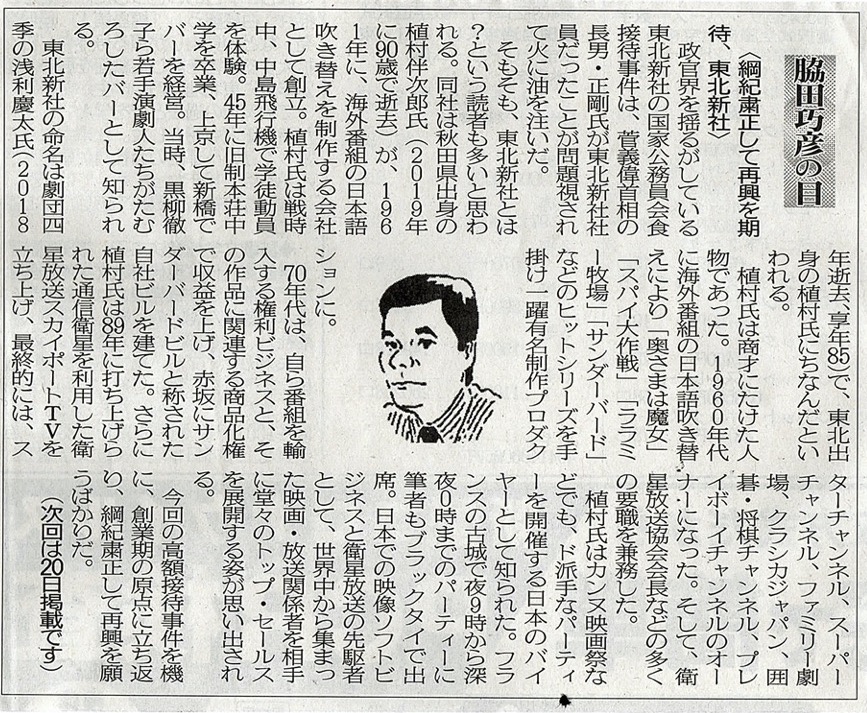 脇田巧彦の目
〈綱紀粛正して再興を期
待、東北新社〉
　政官界を揺るがしている
東北新社の国家公務員会食
接待事件は、菅義偉首相の
長男・正剛氏が東北新社社
員だったことが問題視され
て火に油を注いだ。
　そもそも、東北新社とは
？という読者も多いと思わ
れる。同社は秋田県出身の
植村伴次郎氏（２０１９年
に90歳で逝去）が、１９６
１年に、海外番組の日本語
吹き替えを制作する会社
として創立。植村氏は戦時
中、中島飛行機で学徒動員
を体験。45年に旧制本荘中
学を卒業、上京して新橋で
バーを経営。当時、黒柳徹
子ら若手演劇人たちがたむ
ろしたバーとして知られ
る。
　東北新社の命名は劇団四
季の浅利慶太氏（２０１８
年逝去、享年85）で、東北出
身の植村氏にちなんだとい
われる。
　植村氏は商才にたけた人
物であった。１９６０年代
に海外番組の日本語吹き替
えにより「奥さまは魔女」
「スパイ大作戦」「ララミ
ー牧場」「サンダーバード」
などのヒットシリーズを手
掛け一躍有名制作プロダク
ションに。
　70年代は、自ら番組を輸
入する権利ビジネスと、そ
の作品に関連する商品化権
で収益を上げ、赤坂にサン
ダーバードビルと称された
自社ビルを建てた。さらに
植村氏は89年に打ち上げら
れた通信衛星を利用した衛
星放送スカイポートＴＶを
立ち上げ、最終的には、ス
ターチャンネル、スーパー
チャンネル、ファミリー劇
場、クラシカジャパン、囲
碁・将棋チャンネル、プレ
イボーイチャンネルのオー
ナーになった。そして、衛
星放送協会会長などの多く
の要職を兼務した。
　植村氏はカンヌ映画祭な
どでも、ド派手なパーティ
ーを開催する日本のバイ
ヤーとして知られた。フラ
ンスの古城で夜９時から深
夜０時までのパーティーに
筆者もブラックタイで出
席。日本での映像ソフトビ
ジネスと衛星放送の先駆者
として、世界中から集まっ
た映画・放送関係者を相手
に堂々のトップ・セールス
を展開する姿が思い出され
る。
　今回の高額接待事件を機
に、創業期の原点に立ち返
り、綱紀粛正して再興を願
うばかりだ。
（次回は20日掲載です）